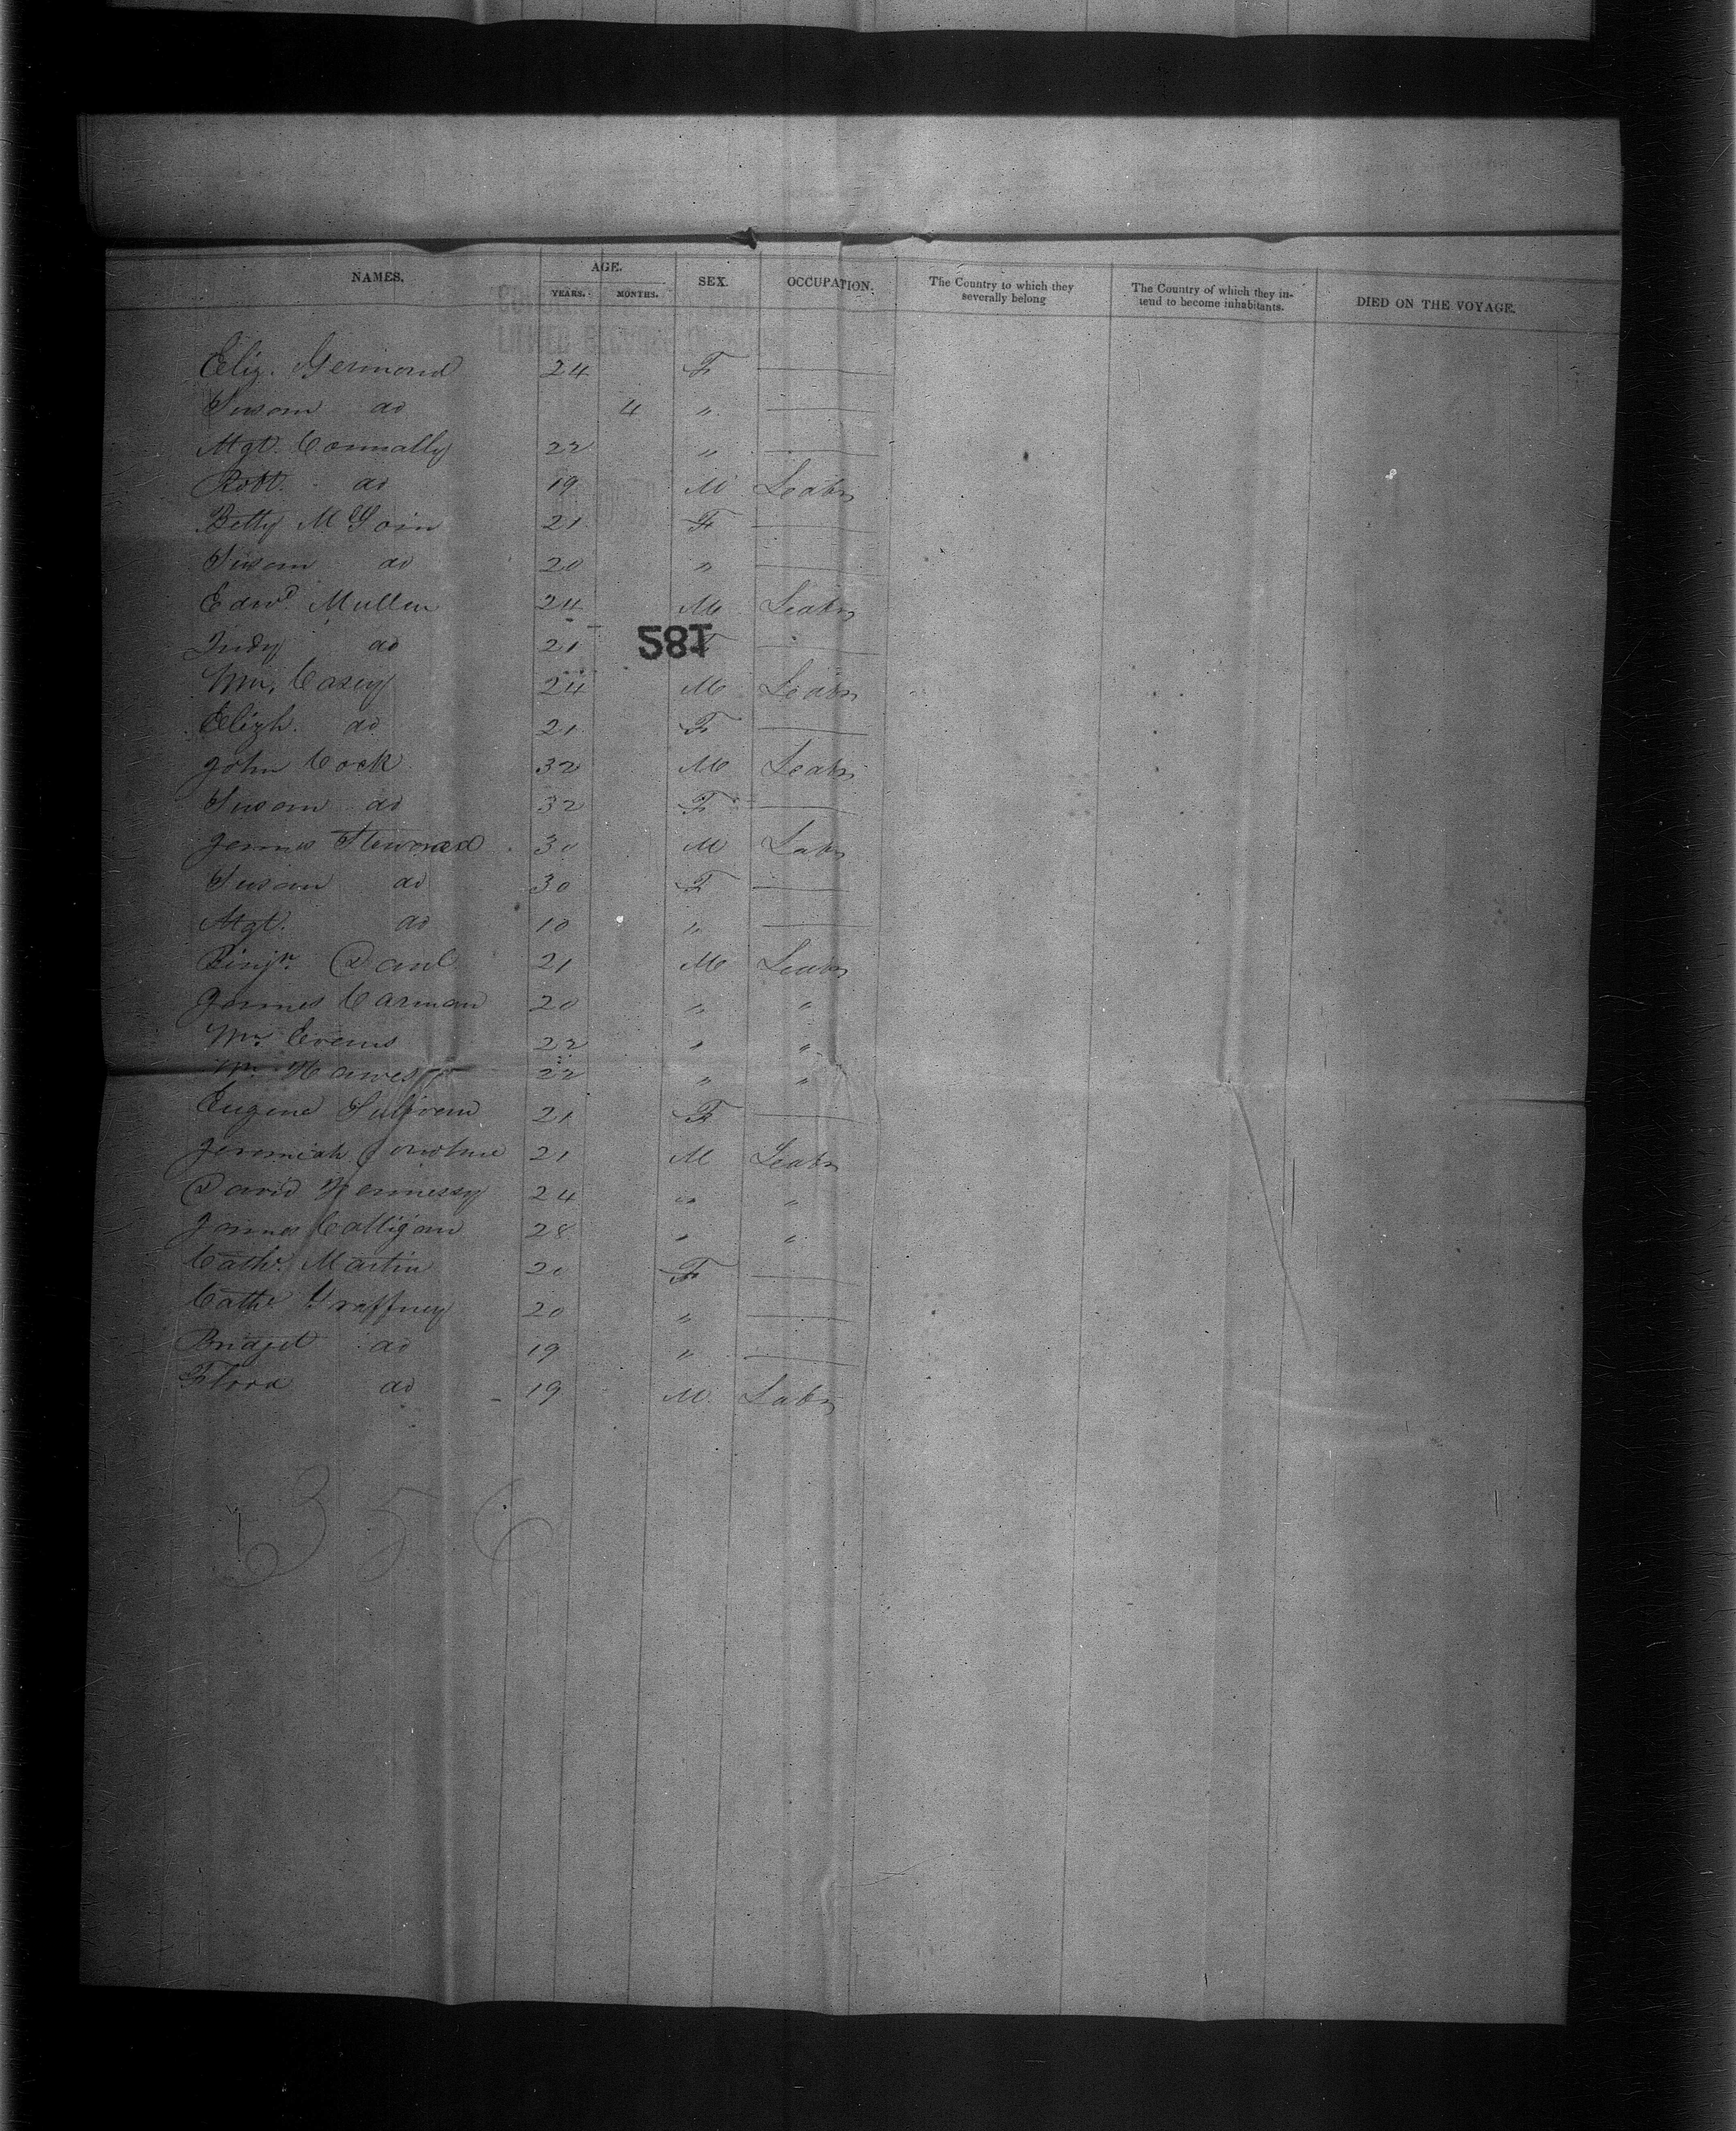 NAMES. AGE. SEX. OCCUPATION. The Country to which they severally belong The Country of which they in-tend to become inhabitants. DIED ON THE VOYAGE.
YEARS. MONTHS.
Eliz. Germond 24 F
Susan do 4 "
Mgt. Connally 22 "
Robt. do 19 M Labr
Betty McGoin 21 F
Susan do 20 "
Edwd. Mullen 24 M Labr
Judy do 21 F
182
Wm. Casey 24 M Labr
Elizh. do 21 F
John Cock 32 M Labr
Susan do 32 F
James Steward 30 M Labr
Susan do 30 F
Mgt. do 10 "
Binjn. 21 M Labr
James Carman 20 " "
Wm. Evans 22 " "
Wm. 22 " "
Eugene Sulivan 21 F
Jeremiah 21 M Labr
David Hennessy 24 " "
James Calligan 28 " "
Cathe. Martin 20 F
Cathe. Graffney 20 "
Bridget do 19 "
Flora do 19 M Labr
356